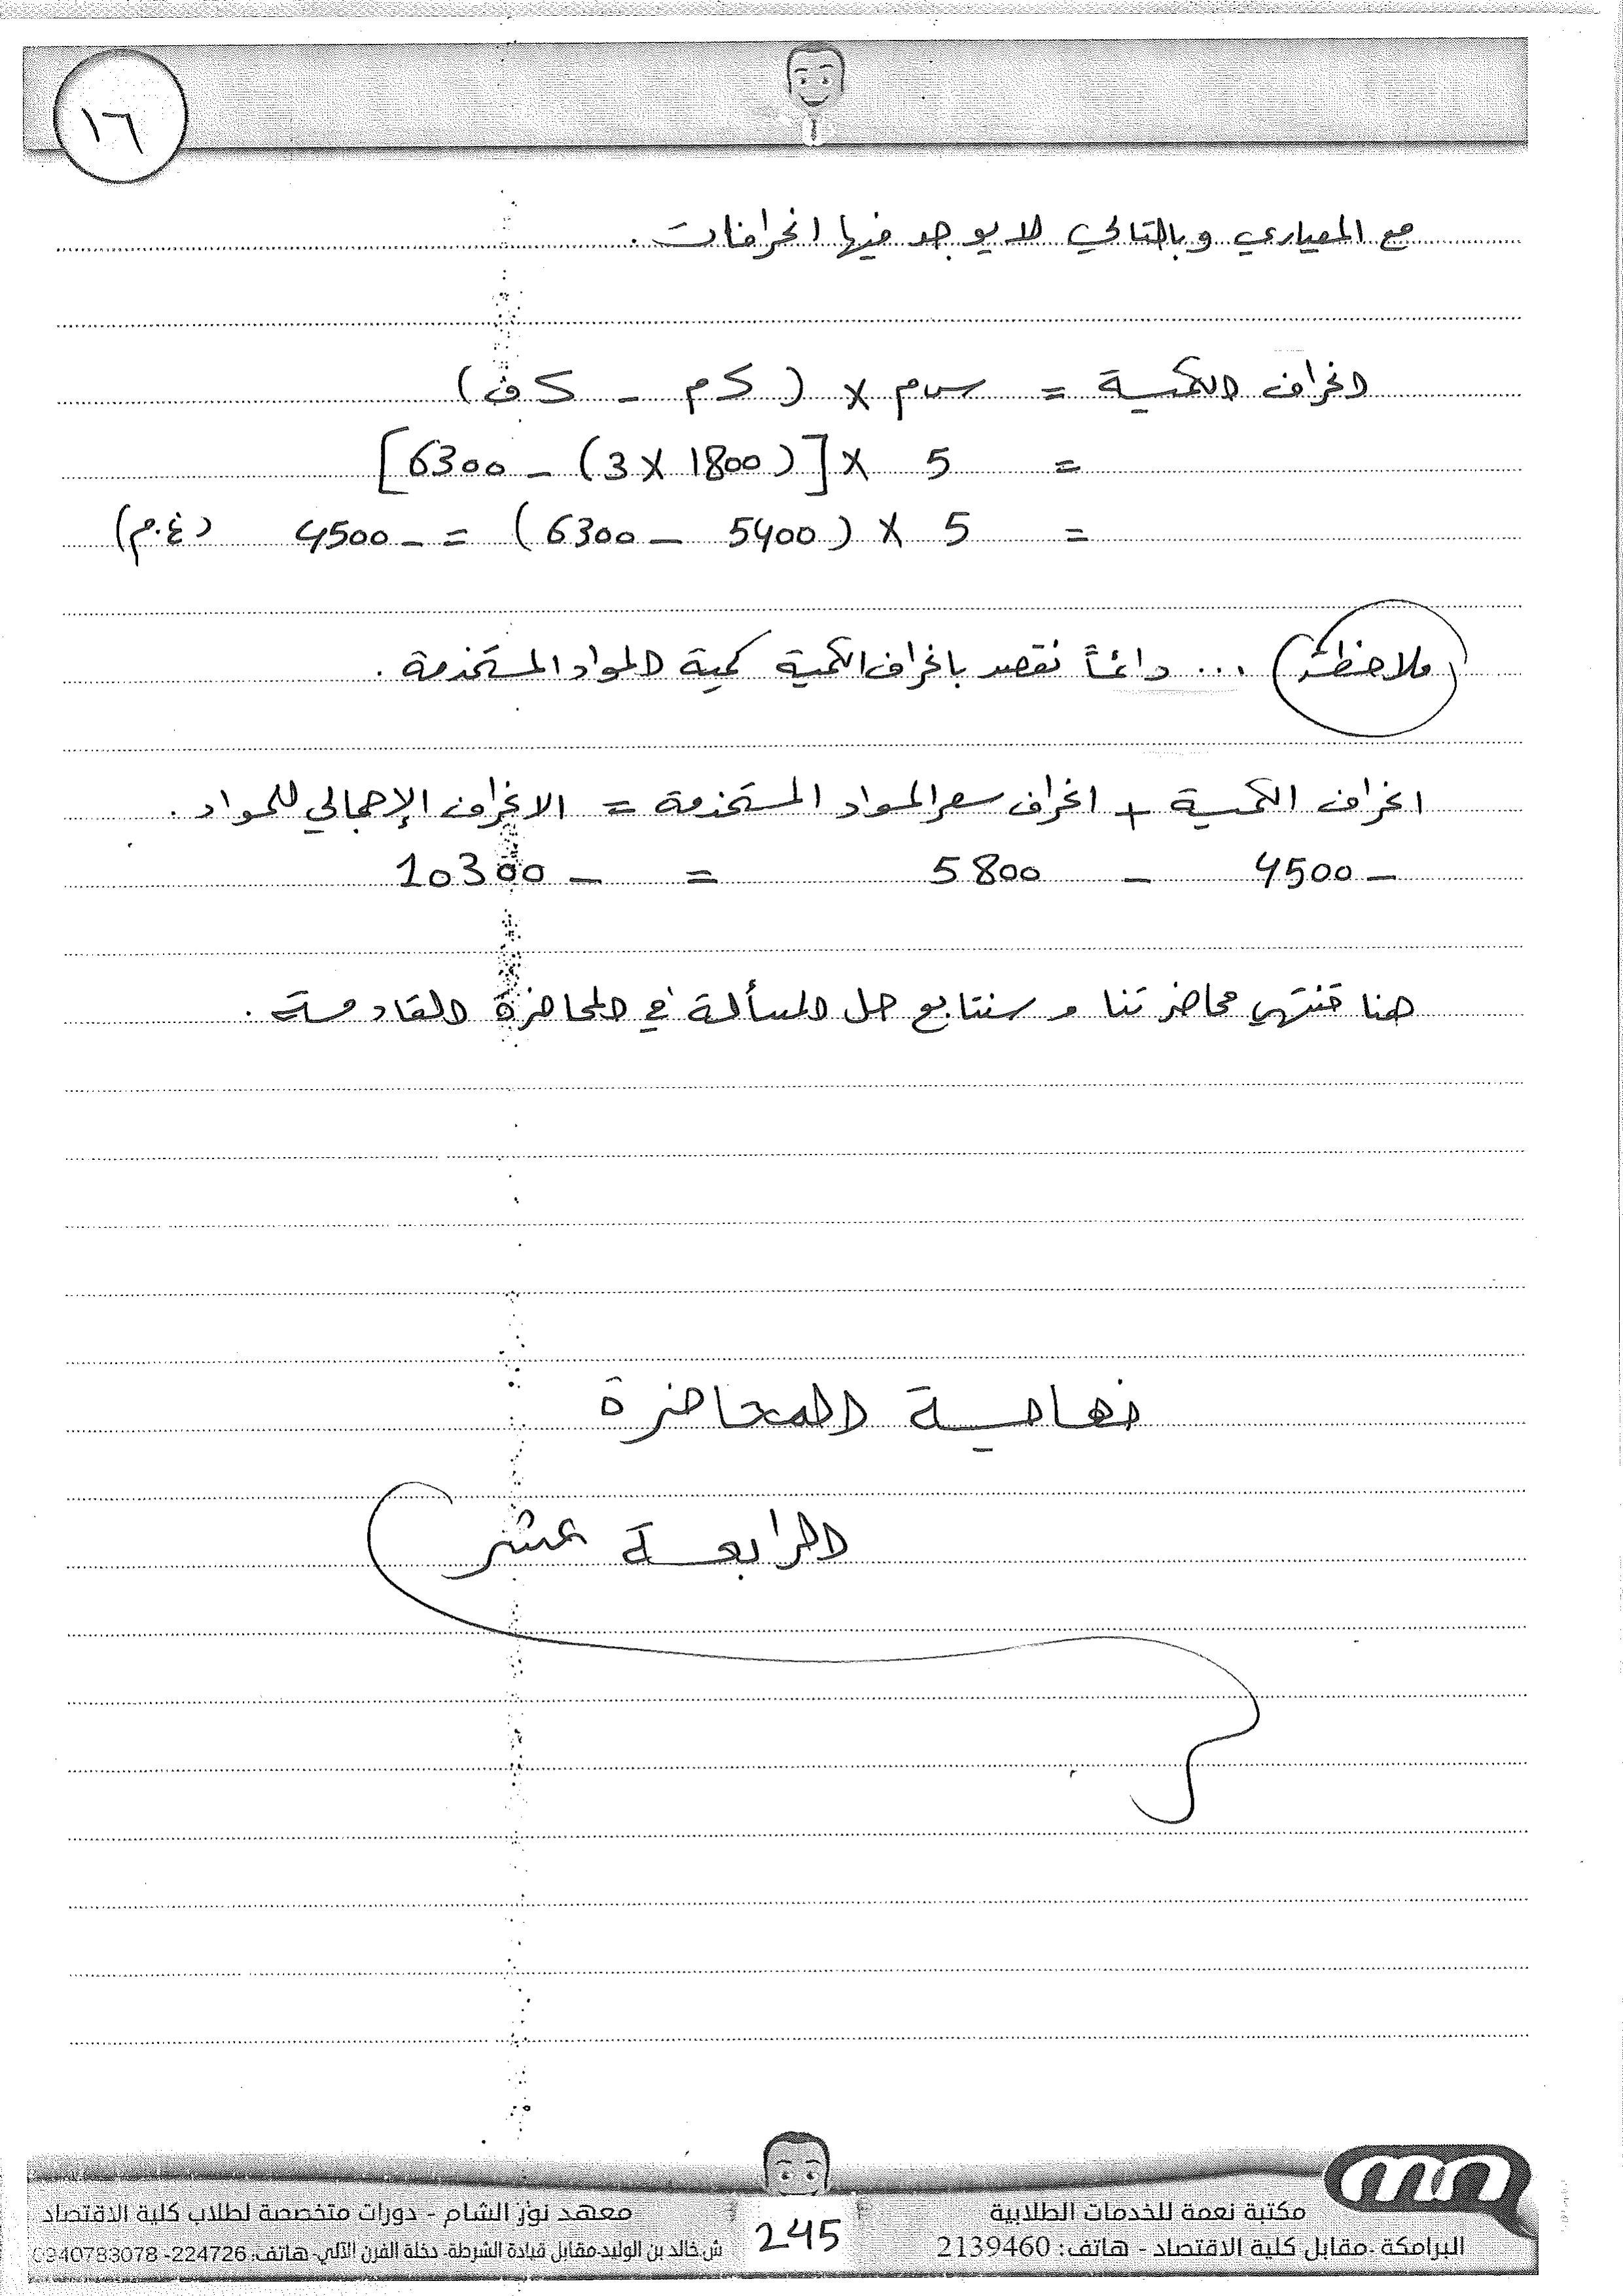 ١٦
مع المعياري وبالتالي لا يوجد فيها انحرافات .
انحراف الكمية = س م × ( ك م - ك ف )
= 5 × [ ( 3 × 1800 ) - 6300 ]
= 5 × ( 5400 - 6300 ) = - 4500 ( غ . م )
ملاحظة ... دائماً نقصد بانحراف الكمية كمية المواد المستخدمة .
انحراف الكمية + انحراف سعر المواد المستخدمة = الانحراف الإجمالي للمواد .
- 4500 - 5800 = - 10300
هنا تنتهي محاضرتنا وسنتابع حل المسألة في المحاضرة القادمة .
نهاية المحاضرة
الرابعة عشر
مكتبة نعمة للخدمات الطلابية
البرامكة -مقابل كلية الاقتصاد - هاتف: 2139460
245
معهد نور الشام - دورات متخصصة لطلاب كلية الاقتصاد
ش.خالد بن الوليد-مقابل قيادة الشرطة- دخلة الفرن الآلي- هاتف: 224726- 0940783078